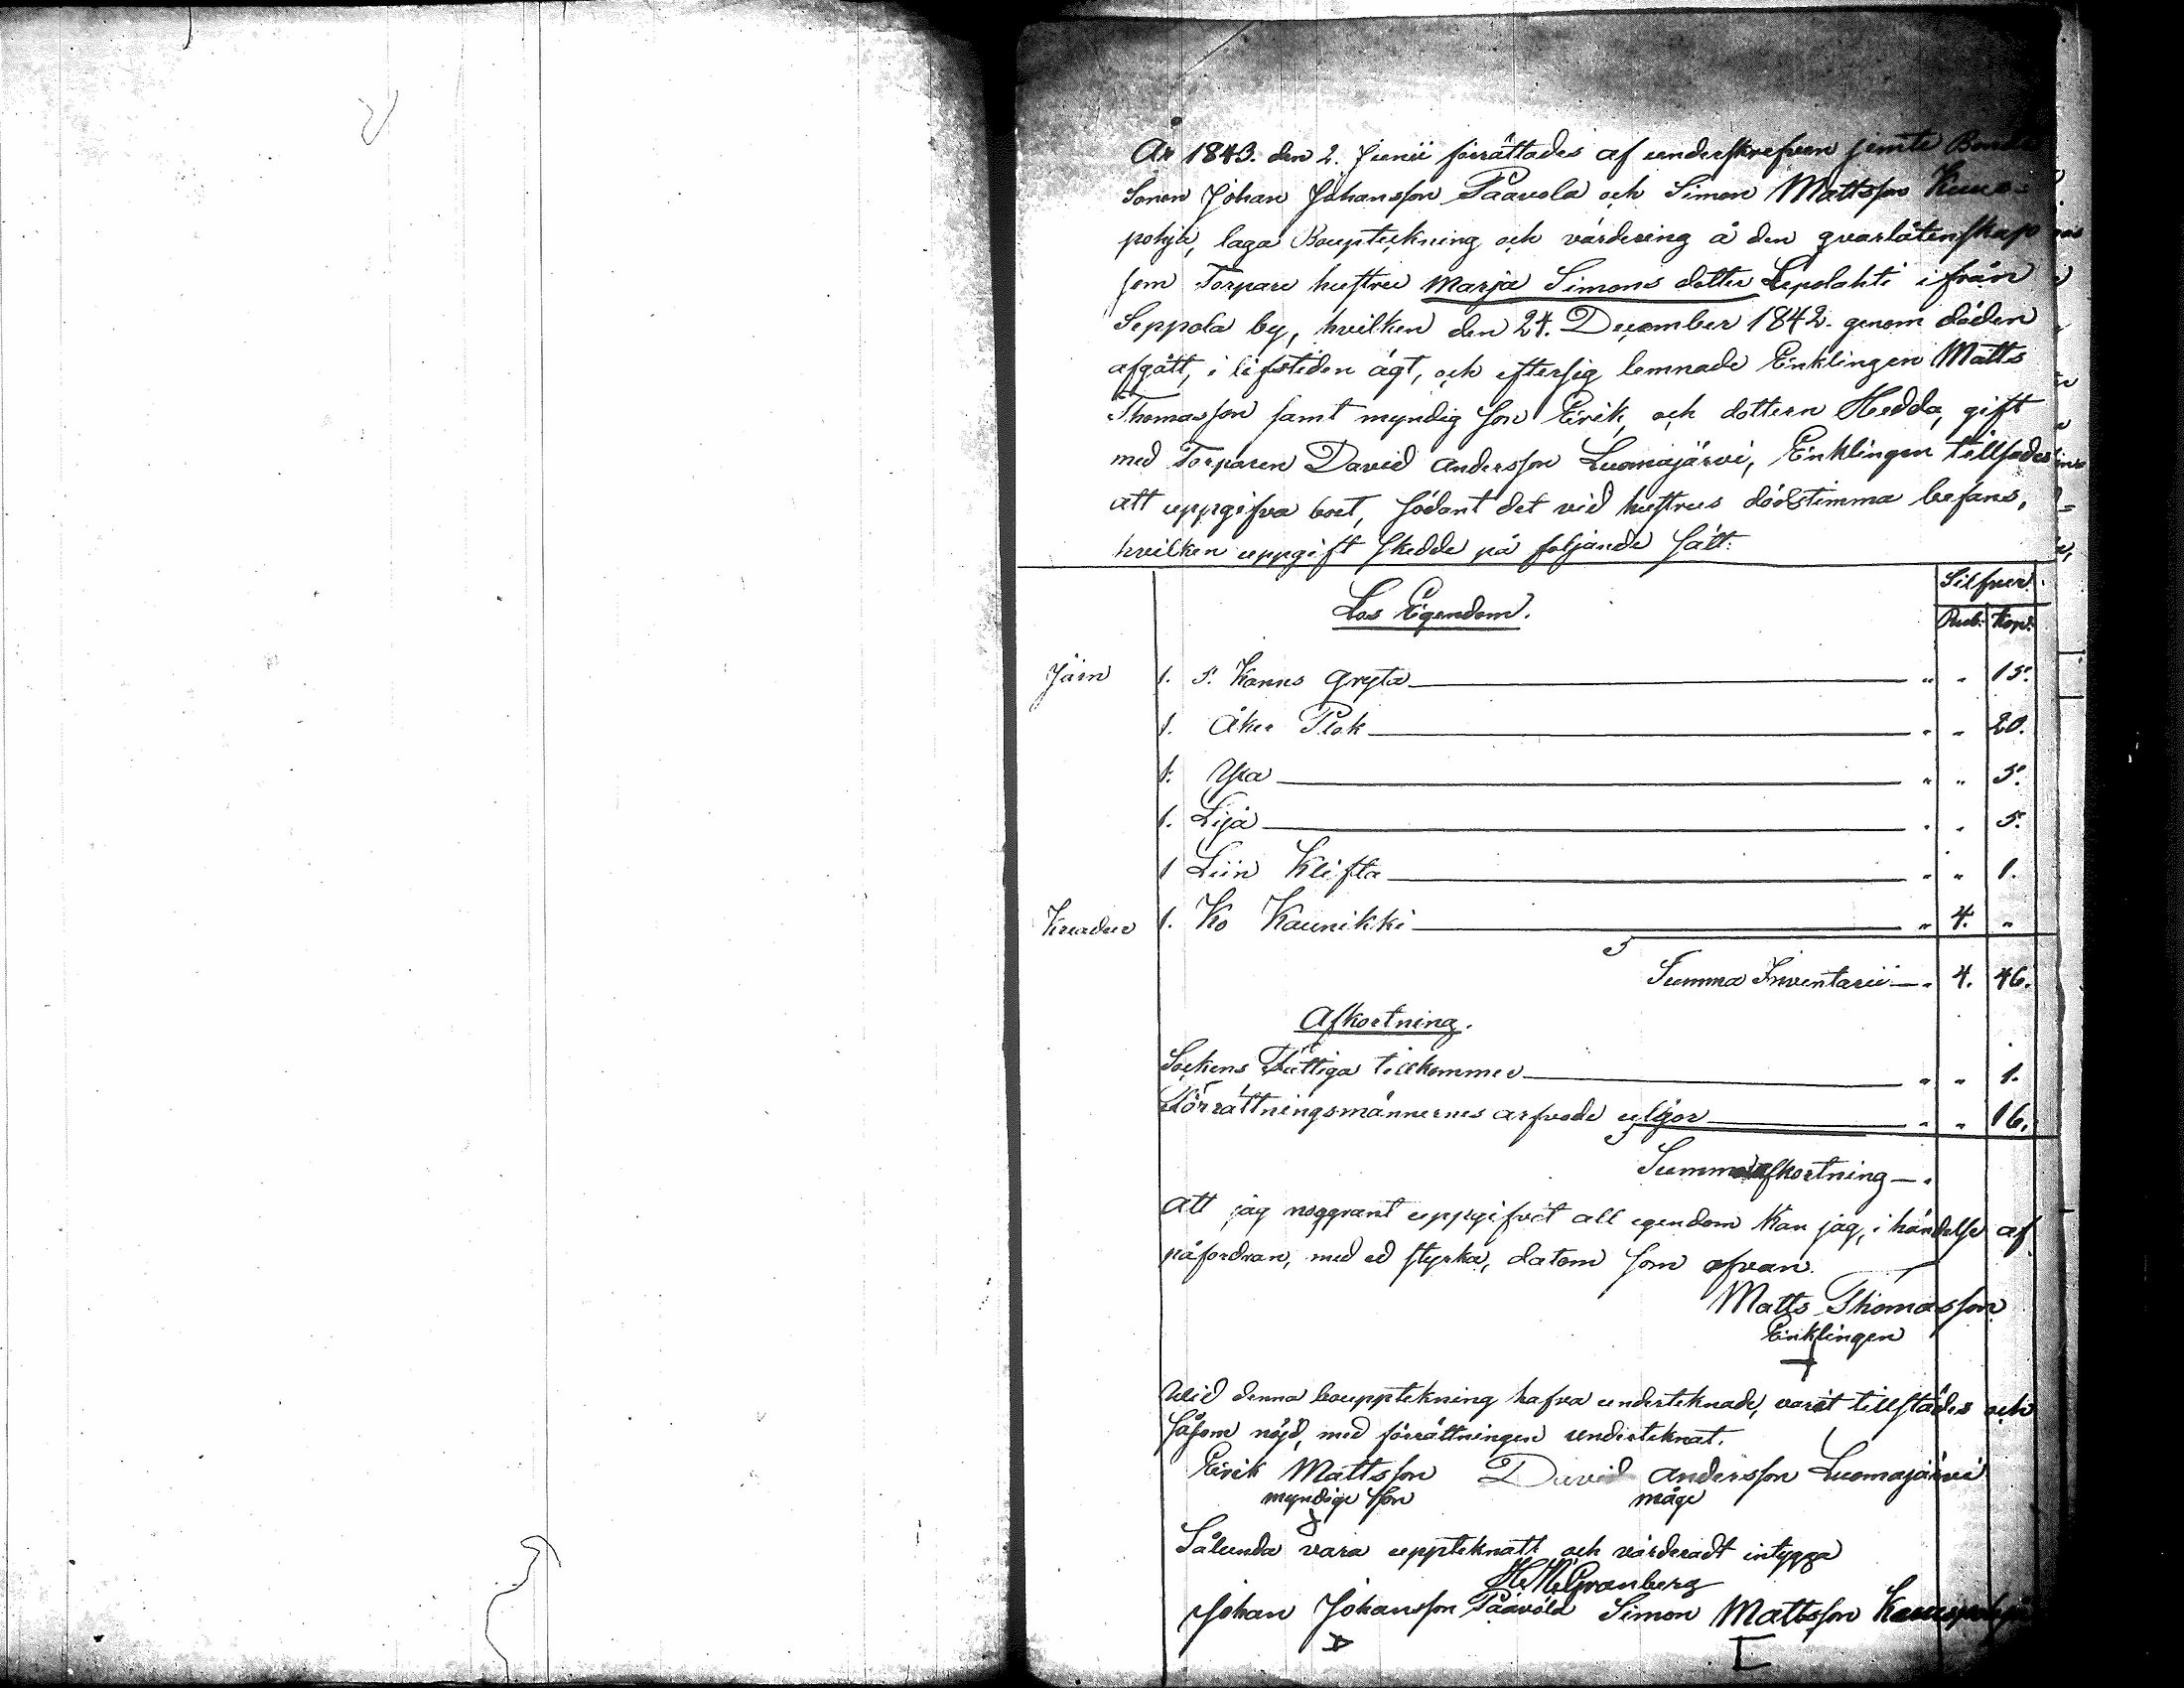 År 1843. den 2. Junii förrättades af underskrefven jemte Bonde
Sonen Johan Johansson Paavola och Simon Mattsson Kuus-
pohja, laga Bouptekning och värdering å den qvarlåtenskap
som Torpare hustru Marja Simons dotter Lepolahti ifrån
Seppola by, hvilken den 24. December 1842. genom döden
afgått, i lifstiden ägt, och eftersig lemnade Enklingen Matts
Thomasson samt myndig son Erik, och dottern Hedda, gift
med Torparen David Andersson Luomajärvi, Enklingen tillsades
att uppgifva boet, sådant det vid hustrus dödstimma befans,
hvilken uppgift skedde på foljande sätt:
Silfver.
Lös Egendom.
Rub. Kop.
Järn 1. 5. Kanns Gryta " " 15.
1. Åker Plok " " 20.
1. Yxa " " 5.
1. Lija " " 5.
1 Liin Klifta " " 1.
Kreadur 1. Ko Kaunikki " 4. "
Summa Inventarii " 4. 46.
Afkortning.
Sockens Fattiga tillkommer " " 1.
Förrättningsmännernes arfvode utgör " " 16.
Summa afkortning "
Att jag noggrant uppgifvit all egendom kan jag, i händelse af
påfordran, med ed styrka, datom som ofvan.
Matts Thomasson
Enklingen
Wid denna bouppteknning hafva underteknade, varit tillstädes och
såsom nöjd, med förrättningen underteknat.
Erik Mattsson David Andersson Luomajärvi
myndige son måge
Sålunda vara uppteknatt och värderadt intygga
H. H. Granberg
Johan Johansson Paavola Simon Mattsson